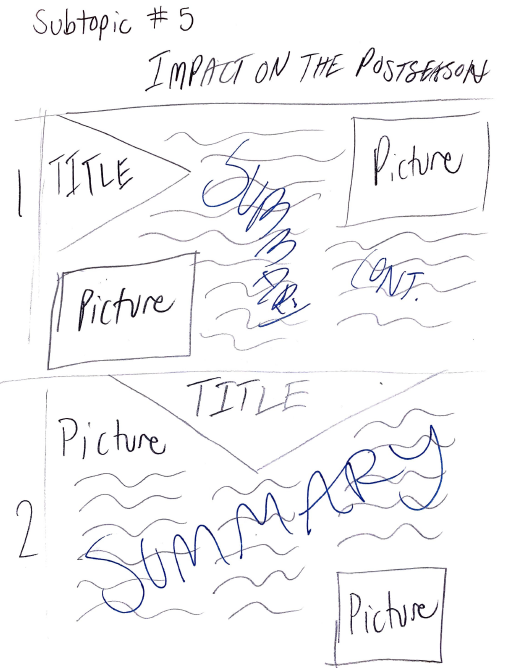 Subtopic # 5
IMPACT ON THE POSTSEASON
1
TITLE
Picture
CONT.
Picture
TITLE
Picture
2
SUMMARY
Picture